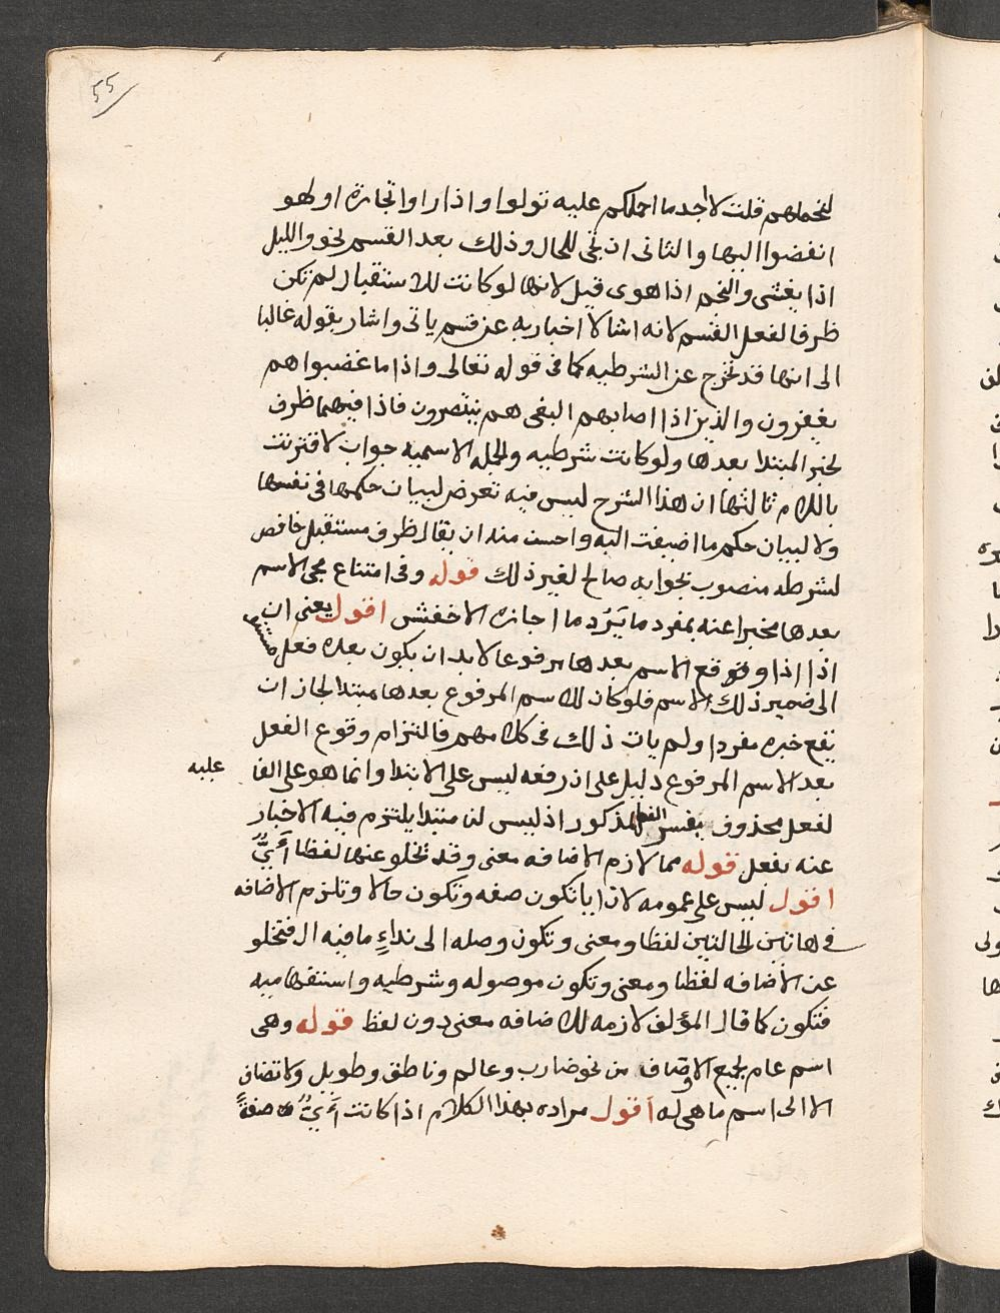 55
لتحملهم قلت لا اجد ما احملكم عليه تولوا واذا راوا تجارة او لهو
انفضوا اليها والثانى ان تجى للحال وذلك بعد القسم نحو والليل
اذا يغشى والنجم اذا هوى قيل لانها لو كانت للاستقبال لم تكن
ظرفا لفعل القسم لانه انشا لا اخبار به عن قسم ياتى واشار بقوله غالبا
الى انها قد تخرج عن الشرطيه كما فى قوله تعالى واذا ما غضبوا هم
يغفرون والذين اذا اصابهم البغى هم ينتصرون فاذا فيهما ظرف
لخبر المبتدا بعدها ولو كانت شرطيه والجمله الاسميه جواب لاقترنت
بالفاء ثالثها ان هذا الشرح ليس فيه تعرض لبيان حكمها فى نفسها
ولا لبيان حكم ما اضيفت اليه واحسن منه ان يقال ظرف مستقبل خافض
لشرطه منصوب بجوابه صالح لغير ذلك قوله وفى امتناع مجى الاسم
بعدها مخبرا عنه بمفرد ما يَرُد ما اجازه الاخفش اقول يعنى ان
اذا اذا وقع الاسم بعدها مرفوعا لابد ان يكون بعده فعل مستند
الى ضمير ذلك الاسم فلو كان للاسم المرفوع بعدها مبتدا لجاز ان
يقع خبره مفردا ولم يات ذلك فى كلامهم فالتزام وقوع الفعل
بعد الاسم المرفوع دليل على ان رفعه ليس على الابتدا وانما هو على الفا عليه
لفعل محذوف يفسره الفعل المذكور اذ ليس لنا مبتدا يلتزم فيه الاخبار
عنه بفعل قوله مما لازم الاضافه معنى وقد تخلو عنها لفظا اَىٌّ
اقول ليس على عمومه لان ايا تكون صفه وتكون حالا وتلزم الاضافه
فى هاتين الحالتين لفظا ومعنى وتكون وصله الى نداءِ ما فيه ال فتخلو
عن الاضافه لفظا ومعنى وتكون موصوله وشرطيه واستفهاميه
فتكون كما قال المؤلف لازمه للاضافه معنى دون لفظ قوله وهى
اسم عام لجميع الاوصاف من نحو ضارب وعالم وناطق وطويل ولا تضاف
الا الى اسم ما هى له اقول مراده بهذا الكلام اذا كانت اَىٌّ صفةً